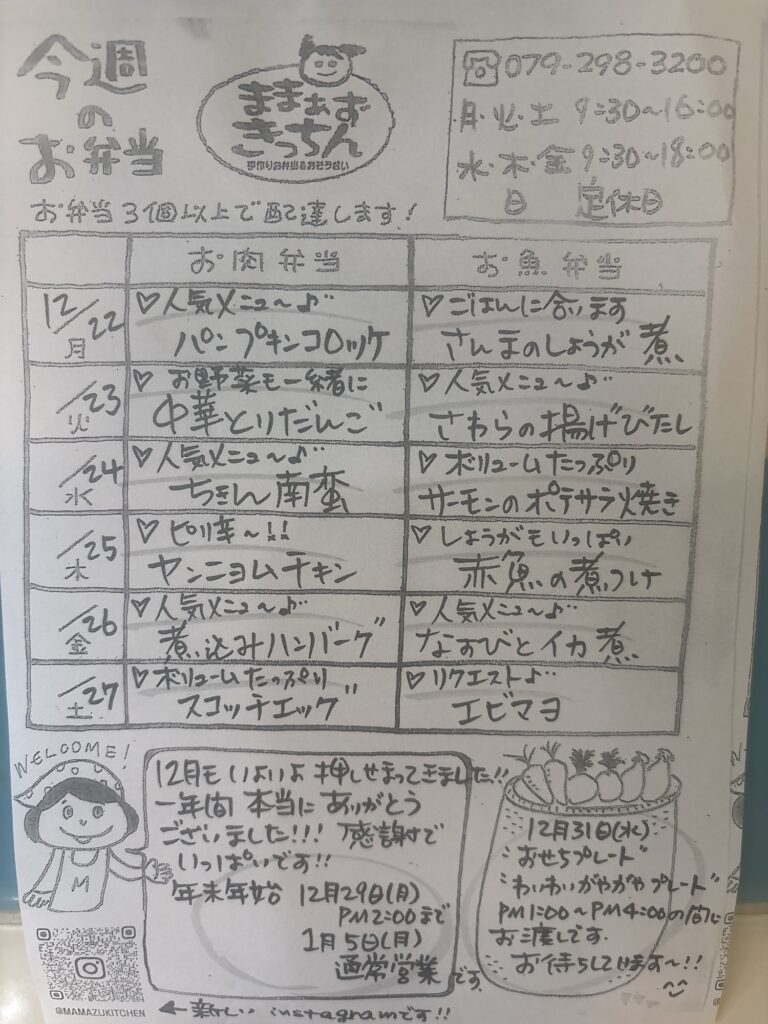 今週
の
お弁当
ままぁず
きっちん
手作りお弁当&おそうざい
☎079-298-3200
月・火・土 9:30～16:00
水・木・金 9:30～18:00
日 定休日
お弁当3個以上で配達します!
お肉弁当 お魚弁当
12/22 月
♡人気メニュ～♪
パンプキンコロッケ
♡ごはんに合います
さんまのしょうが煮
/23 火
♡お野菜も一緒に
中華とりだんご
♡人気メニュ～♪
さわらの揚げびたし
/24 水
♡人気メニュ～♪
ちきん南蛮
♡ボリュームたっぷり
サーモンのポテサラ焼き
/25 木
♡ピリ辛～!!
ヤンニョムチキン
♡しょうがもいっぱい
赤魚の煮つけ
/26 金
♡人気メニュ～♪
煮込みハンバーグ
♡人気メニュ～♪
なすびとイカ煮
/27 土
♡ボリュームたっぷり
スコッチエッグ
♡リクエスト♪
エビマヨ
WELCOME!
M
12月もいよいよ押しせまってきました!!
一年間 本当に ありがとう
ございました!!! 感謝で
いっぱいです!!
年末年始 12月29日(月)
PM2:00まで
1月5日(月)
通常営業です。
12月31日(水)
"おせちプレート"
"わいわいがやがやプレート"
PM1:00～PM4:00の間に
お渡しです。
お待ちしてます～!!
@MAMAZUKITCHEN
←新しい instagramです!!